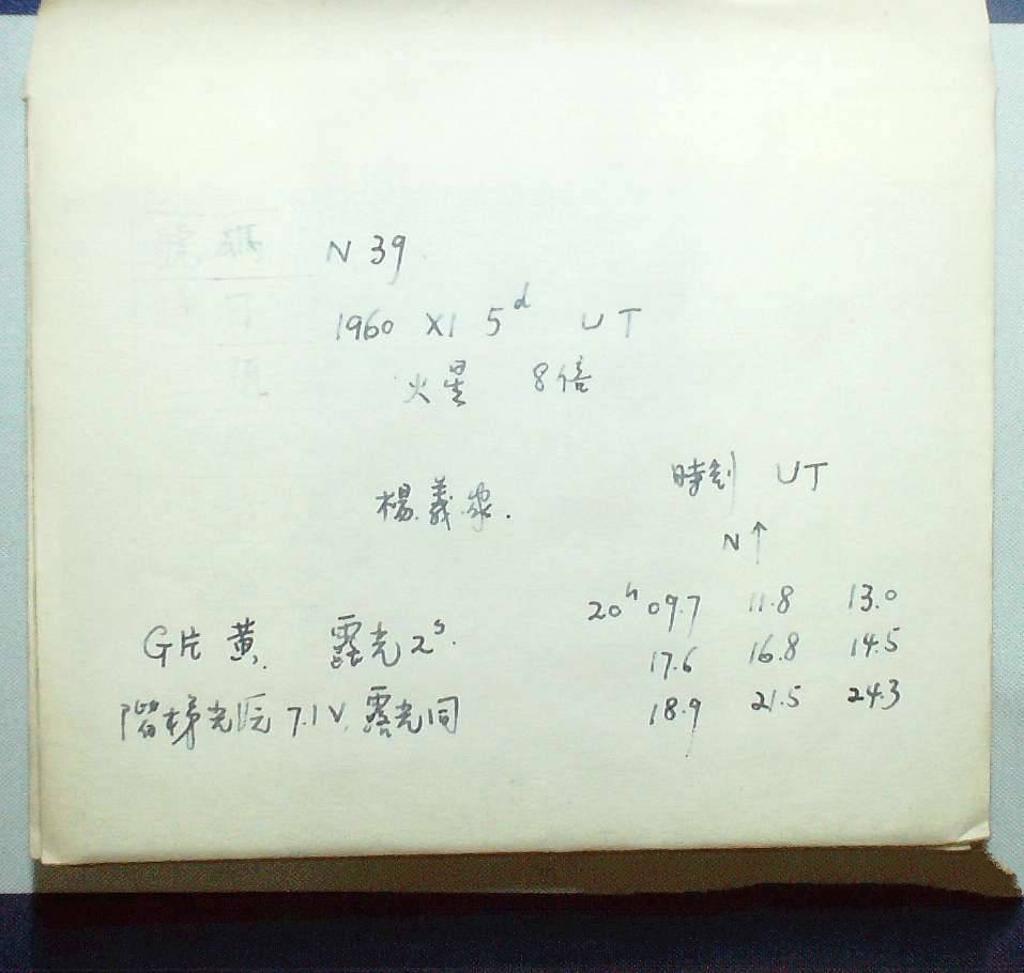 號碼
N 39
1960 XI 5d UT
火星 8倍
楊義
時刻 UT
N↑
20h 09.7 11.8 13.0
17.6 16.8 14.5
18.9 21.5 24.3
G片 黄. 露光2s.
階梯光源 7.1V, 露光同